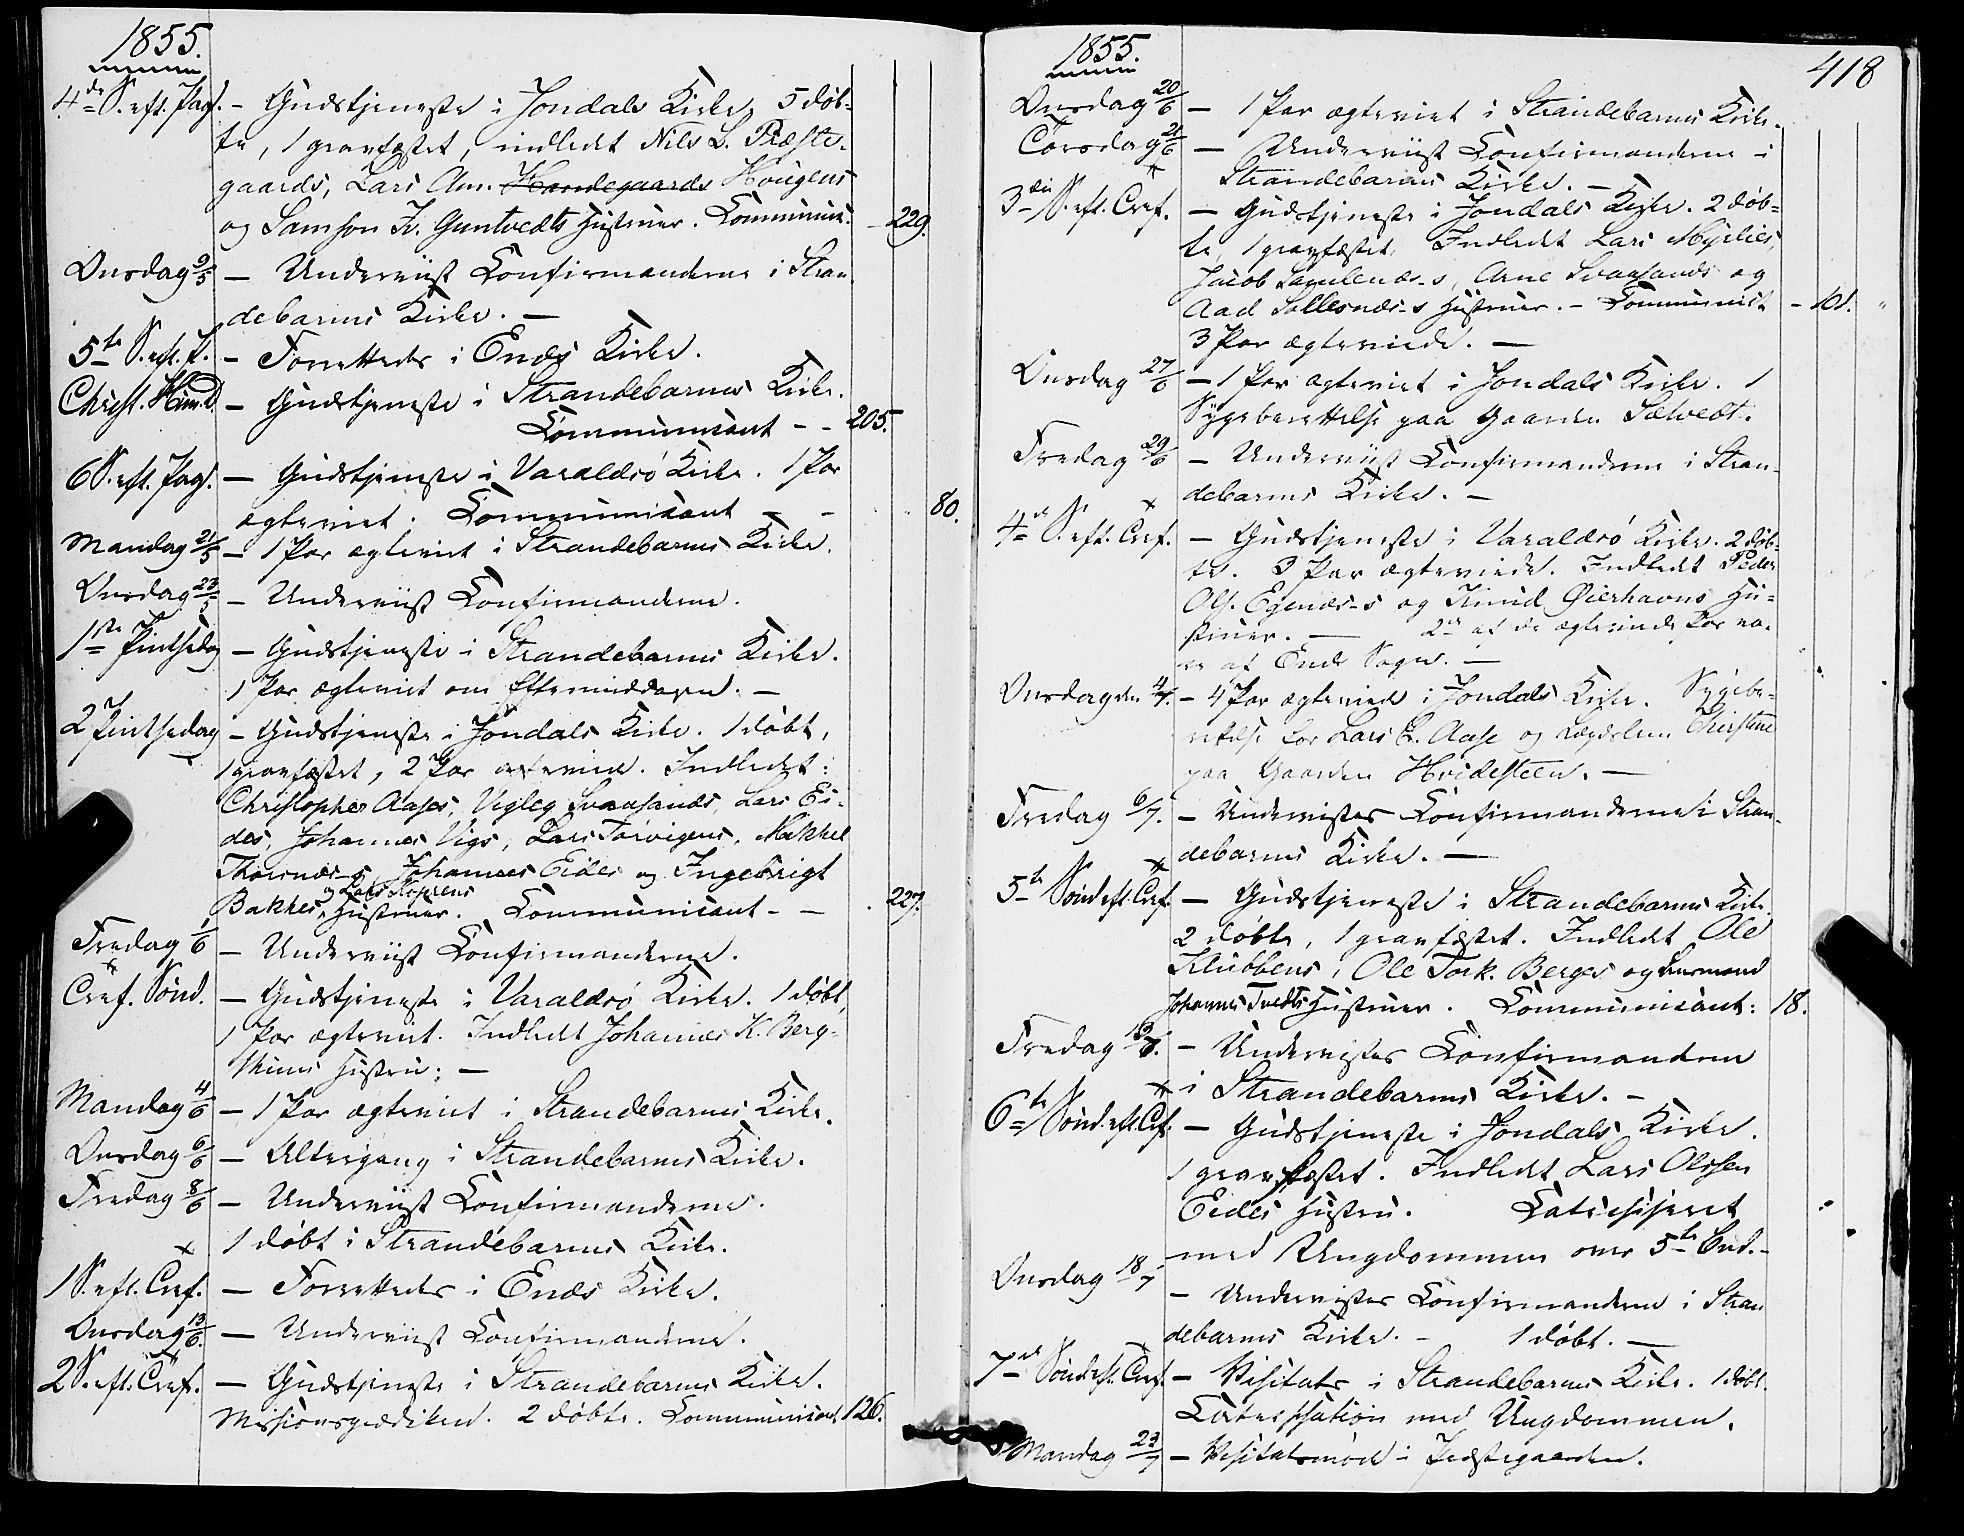 1855.
4de S. eft. Pask. – Gudstjeneste i Jondals Kirke, 5 døb-
te, 1 gravfæstet, indledt Nils L. Præste-
gaards, Lars Am. Handegaards Hougens
og Samson Fr. Guntvedts Hustruer. Communic. – 229.
Onsdag 9/5 – Underviist Confirmanderne i Stran-
debarms Kirke. –
5te S. eft. P. – Forrettedes i Enæs Kirke.
Christ. Him.d. – Gudstjeneste i Strandebarms Kirke.
Communicant – – 205.
6 S. eft. Pask. – Gudstjeneste i Varaldsö Kirke. 1 Par
ægteviet. Communicant – – 80.
Mandag 21/5 – 1 Par ægteviet i Strandebarms Kirke.
Onsdag 23/5 – Underviist Confirmanderne.
1ste Pintsedag – Gudstjeneste i Strandebarms Kirke.
1 Par ægteviet om Eftermiddagen. –
2 Pintsedag – Gudstjeneste i Jondals Kirke. 1 døbt,
1 gravfæstet, 2 Par ægteviede. Indledt:
Christopher Aases, Vigleg Svaasands, Lars Ei-
des, Johannes Vigs, Lars Torvigens, Mikkel
Thorsnæs-s Johannes Eides og Ingebrigt
Bakkes og Lars Hustruer. Communicant – – 227.
Fredag 1/6 – Underviist Confirmanderne.
Tref. Sønd. – Gudstjeneste i Varaldsö Kirke. 1 døbt,
1 Par ægteviet. Indledt Johannes K. Berg-
thuns Hustru. –
Mandag 4/6 – 1 Par ægteviet i Strandebarms Kirke.
Onsdag 6/6 – Altergang i Strandebarms Kirke.
Fredag 8/6 – Underviist Confirmanderne.
1 døbt i Strandebarms Kirke.
1 S. eft. Tref. – Forrettedes i Enæs Kirke.
Onsdag 13/6. – Underviist Confirmanderne.
2 S. eft. Tref. – Gudstjeneste i Strandebarms Kirke.
Missionsprædiken. 2 døbte. Communicant 126.
1855.
418
Onsdag 20/6 – 1 Par ægteviet i Strandebarms Kirke.
Torsdag 21/6 – Underviist Confirmanderne i
Strandebarms Kirke. –
3die S. eft. Tref. – Gudstjeneste i Jondals Kirke. 2 døb-
te, 1 gravfæstet. Indledt Lars Myklies,
Jacob Samlenæs-s, Arne Svaasands og
Aad Sollesnæs-s Hustruer. – Communicant – 101.
3 Par ægteviede. –
Onsdag 27/6 – 1 Par ægteviet i Jondals Kirke. 1
Sygeberettelse paa Gaarden Sælvedt.
Fredag 29/6 – Underviist Confirmanderne i Stran-
debarms Kirke. –
4de S. eft. Tref. – Gudstjeneste i Varaldsö Kirke. 2 døb-
te. 3 Par ægteviede. Indledt Peder
Ols. Egenæs-s og Knud Øierhavns Hu-
struer. – 2de af de ægteviede Par va-
re af Enæs Sogn. –
Onsdag den 4/7. – 4 Par ægteviede i Jondals Kirke. Sygebe-
rettelse for Lars L. Aase og Lægdslem Christine
paa Gaarden Hvidesteen. –
Fredag 6/7. – Undervistes Confirmanderne i Stran-
debarms Kirke. –
5te Sønd. eft. Tref. – Gudstjeneste i Strandebarms Kirke.
2 døbte, 1 gravfæstet. Indledt Ole
Klubbens, Ole Tork. Berges og Huusmand
Johannes Tvedts Hustruer. Communicant: 18.
Fredag 13/7. – Undervistes Confirmanderne
i Strandebarms Kirke. –
6te Sønd. eft. Tref. – Gudstjeneste i Jondals Kirke.
1 gravfæstet. Indledt Lars Olssen
Eides Hustru. Catechiseret
med Ungdommen over 5te Bud. –
Onsdag 18/7 – Undervistes Confirmanderne i Stran
debarms Kirke. – 1 døbt. –
7de Sønd. eft. Tref. – Visitats i Strandebarms Kirke. 1 døbt.
Catechisation med Ungdommen.
Mandag 23/7 – Visitatsmøde i Præstegaarden.